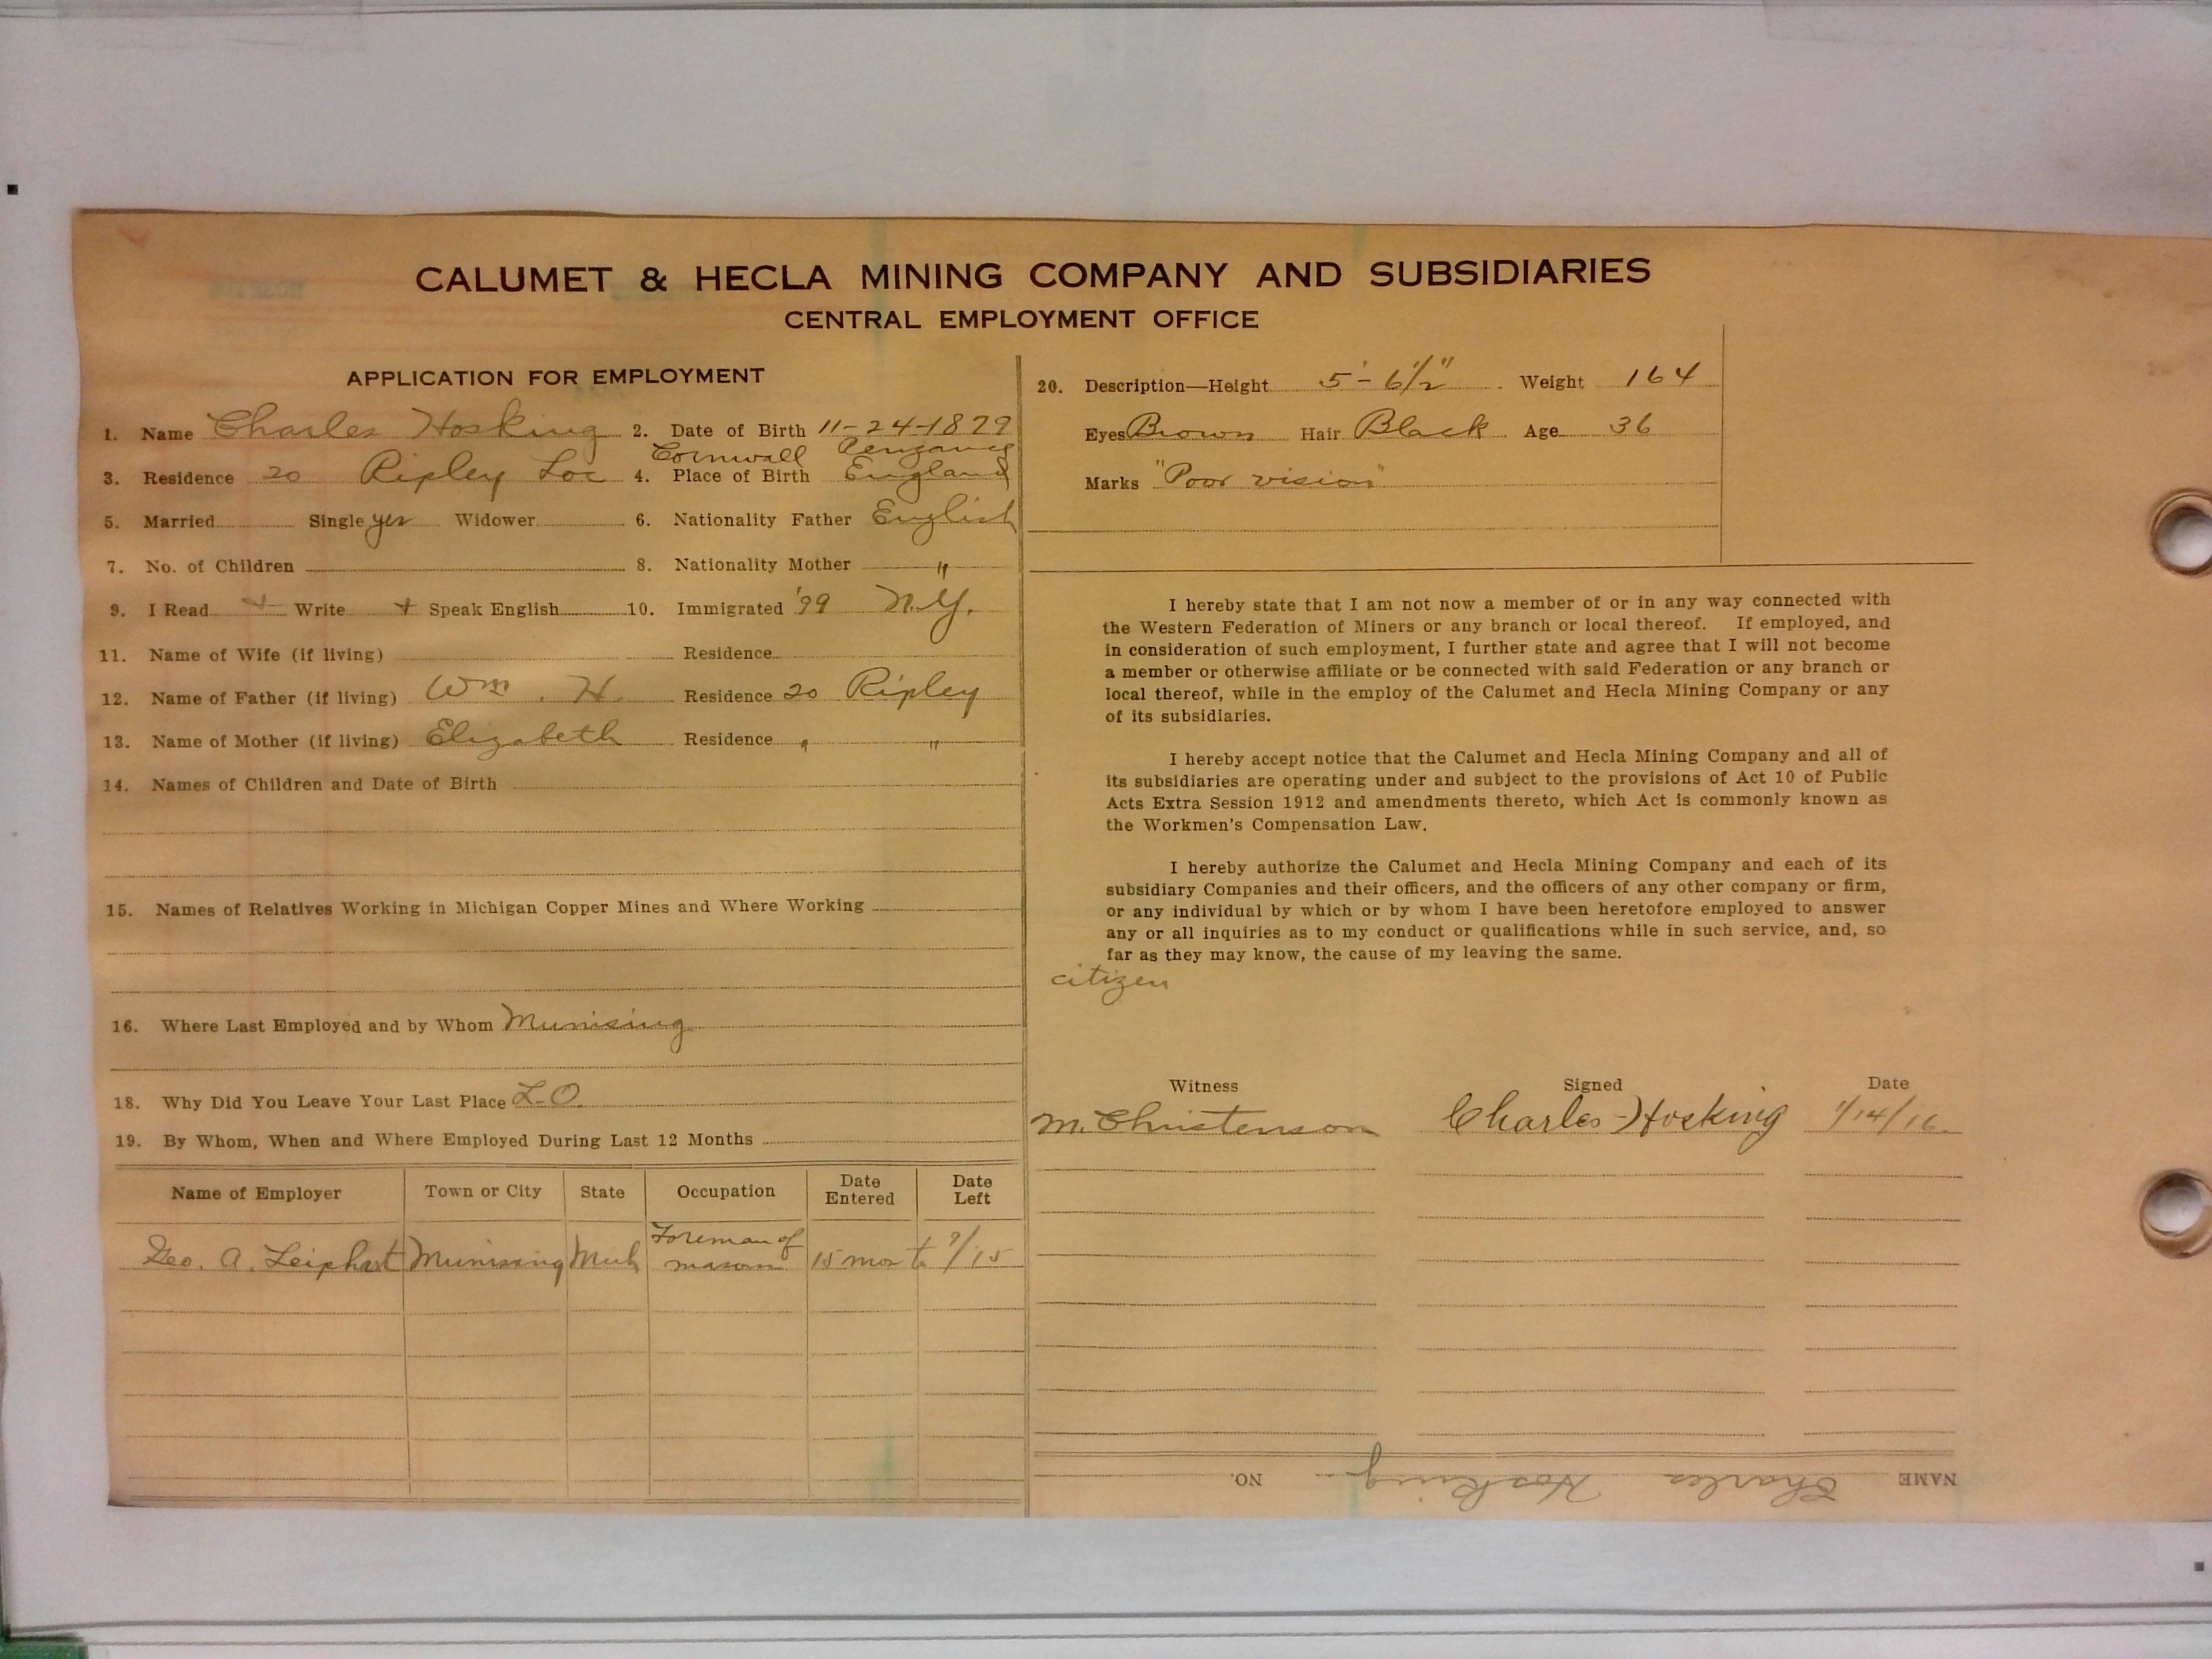 CALUMET & HECLA MINING COMPANY AND SUBSIDIARIES
CENTRAL EMPLOYMENT OFFICE
APPLICATION FOR EMPLOYMENT
1. Name Charles Hosking 2. Date of Birth 11-24-1879
Cornwall Penzance
3. Residence 20 Ripley Loc 4. Place of Birth England
5. Married Single yes Widower 6. Nationality Father English
7. No. of Children 8. Nationality Mother "
9. I Read + Write + Speak English 10. Immigrated '99 N.Y.
11. Name of Wife (if living) Residence
12. Name of Father (if living) Wm. H. Residence 20 Ripley
13. Name of Mother (if living) Elizabeth Residence " "
14. Names of Children and Date of Birth
15. Names of Relatives Working in Michigan Copper Mines and Where Working
16. Where Last Employed and by Whom Munising
18. Why Did You Leave Your Last Place L.O.
19. By Whom, When and Where Employed During Last 12 Months
Name of Employer Town or City State Occupation Date Entered Date Left
Geo. A. Leiphart Munissing Mich Foreman of masons 15 mos to 9/15
20. Description—Height 5'-6 1/2" Weight 164
Eyes Brown Hair Black Age 36
Marks "Poor vision"
I hereby state that I am not now a member of or in any way connected with
the Western Federation of Miners or any branch or local thereof. If employed, and
in consideration of such employment, I further state and agree that I will not become
a member or otherwise affiliate or be connected with said Federation or any branch or
local thereof, while in the employ of the Calumet and Hecla Mining Company or any
of its subsidiaries.
I hereby accept notice that the Calumet and Hecla Mining Company and all of
its subsidiaries are operating under and subject to the provisions of Act 10 of Public
Acts Extra Session 1912 and amendments thereto, which Act is commonly known as
the Workmen's Compensation Law.
I hereby authorize the Calumet and Hecla Mining Company and each of its
subsidiary Companies and their officers, and the officers of any other company or firm,
or any individual by which or by whom I have been heretofore employed to answer
any or all inquiries as to my conduct or qualifications while in such service, and, so
far as they may know, the cause of my leaving the same.
citizen
Witness Signed Date
M. Christenson Charles Hosking 1/14/16.
NAME Charles Hosking NO.